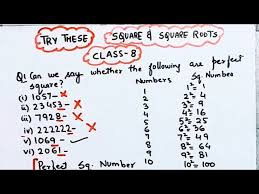 TRY THESE
SQUARE & SQUARE ROOTS
CLASS-8
Q1 Can we say whether the following are perfect
square?
i) 1057- ×
ii) 23453 - ×
iii) 7928 - ×
iv) 222222 - ×
v) 1069 - ✓
vi) 2061 -
Perfect Sq. Number
Numbers
1
2
3
4
5
6
7
8
9
10
Sq Number
1² = 1
2² = 4
3² = 9
4² = 16
5² = 25
6² = 36
7² = 49
8² = 64
9² = 81
10² = 100